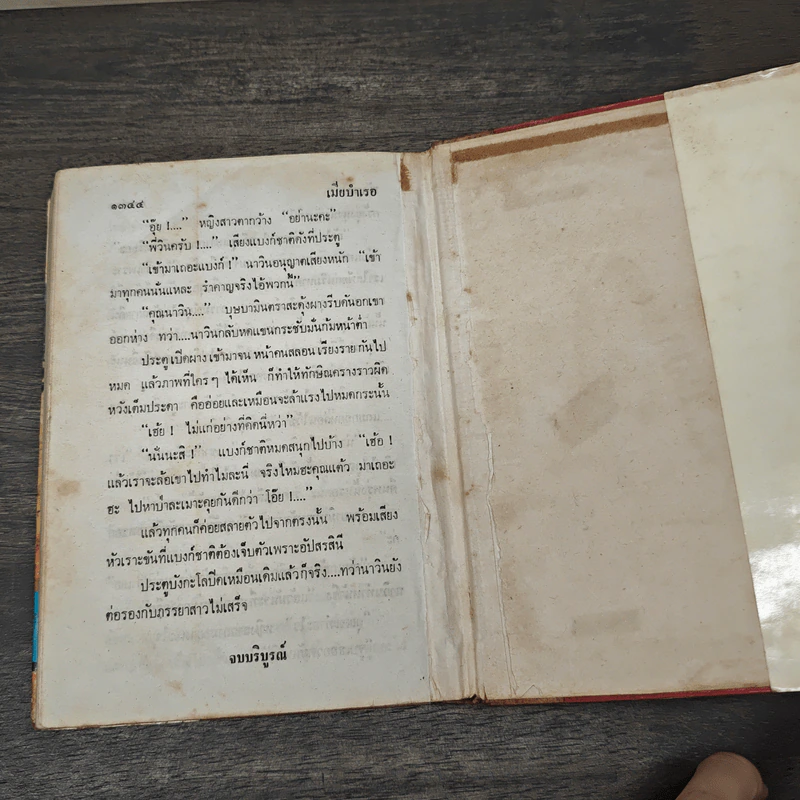 ๑๓๔๔ เมี่ยบำเรอ
“อุ๊ย !....” หญิงสาวตากว้าง “อย่านะคะ”
“พี่วินครับ !....” เสียงแบงก์ชาติดังที่ประตู
“เข้ามาเถอะแบงก์ !” นาวินอนุญาตเสียงหนัก “เข้า
มาทุกคนนั่นแหละ รำคาญจริงไอ้พวกนี้”
“คุณนาวิน....” บุษบามินตราสะดุ้งผางรีบดันอกเขา
ออกห่าง ทว่า....นาวินกลับหดแขนกระชับมั่นก้มหน้าต่ำ
ประตูเปิดผาง เข้ามาจน หน้าคนสลอน เรียงราย กันไป
หมด แล้วภาพที่ใคร ๆ ได้เห็น ก็ทำให้ทักษิณครางราวผิด
หวังเต็มประดา คืออ่อยและเหมือนจะล้าแรงไปหมดกระนั้น
“เฮ้ย ! ไม่แก่อย่างที่คิดนี่หว่า”
“นั่นนะสิ !” แบงก์ชาติหมดสนุกไปบ้าง “เฮ้อ !
แล้วเราจะล้อเขาไปทำไมละนี่ จริงไหมฮะคุณแต้ว มาเถอะ
ฮะ ไปหาบ๋ำละเมาะคุยกันดีกว่า โอ๊ย !....”
แล้วทุกคนก็ค่อยสลายตัวไปจากตรงนั้น พร้อมเสียง
หัวเราะขันที่แบงก์ชาติต้องเจ็บตัวเพราะอัปสรสินี
ประตูบังกะโลปิดเหมือนเดิมแล้วก็จริง....ทว่านาวินยัง
ต่อรองกับภรรยาสาวไม่เสร็จ
จบบริบูรณ์